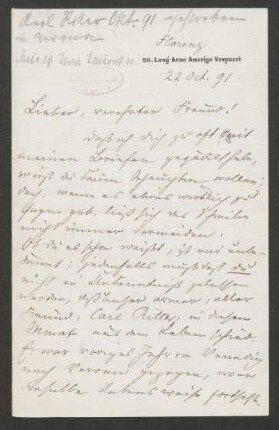 Karl Hiller Okt. 91 gestorben
in Verona
Florenz
20. Lung' Arno Amerigo Vespucci
22 Oct. 91
Lieber, verehrter Freund!
Daß ich dich zu oft mit
meinen Briefen gequält habe,
wirst du kaum behaupten wollen;
doch, wenn es etwas wirklich zu
sagen gab, ließ sich das Schreiben
nicht immer vermeiden.
Ob du es schon weißt, ist mir unbe-
kannt; jedenfalls mußt du
nicht in Unkenntniß gelassen
werden, daß unser armer, alter
Freund, Carl Hiller, in diesem
Monat aus dem Leben schied.
Er war voriges Jahr von Venedig
nach Verona gezogen, wo er
dieselbe Lebensweise fortsetzte